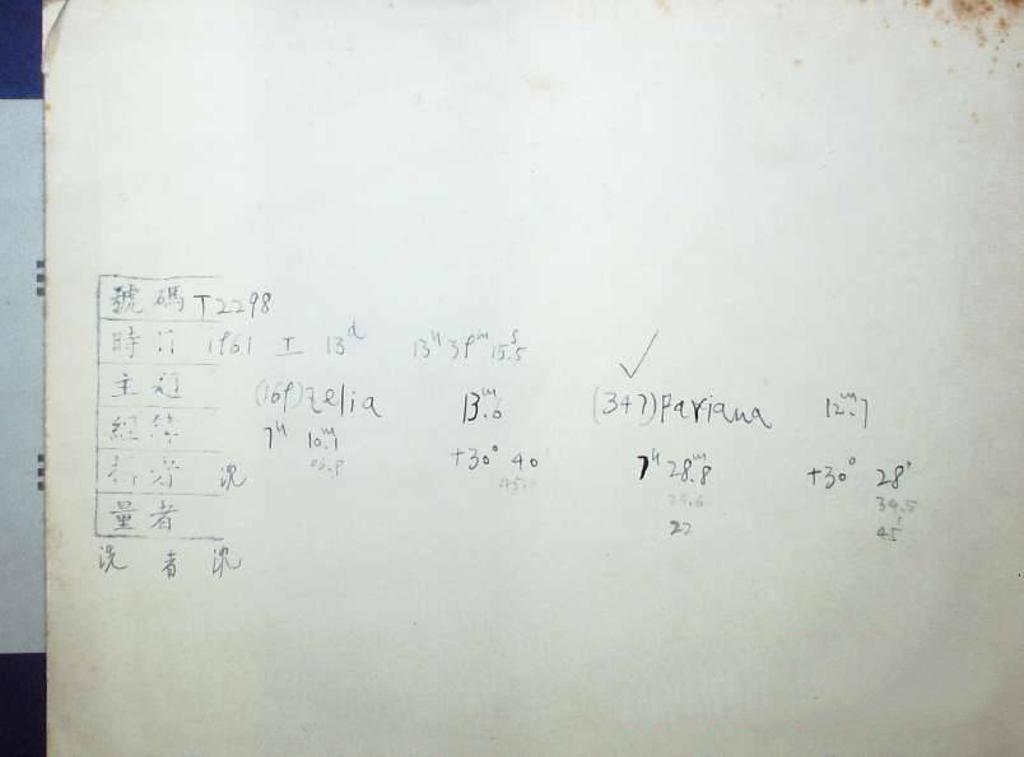 號碼 T2298
時 1961 I 13ᵈ 13ʰ 39ᵐ 15ˢ.5
主 (169) Zelia 13ᵐ.6 (347) Pariana 12ᵐ.7
7ʰ 10ᵐ.1 +30° 40' 7ʰ 28ᵐ.8 +30° 28'
34.5
沈
22 45'
量者
洗者 沈